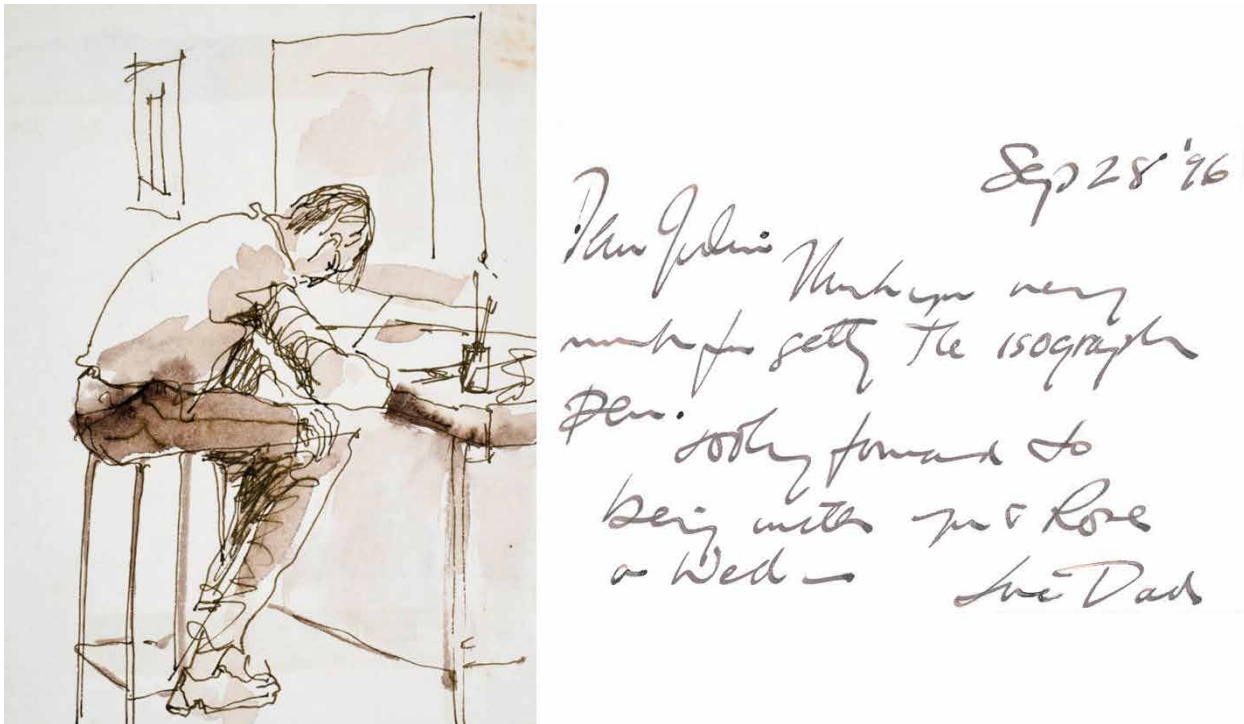 Sep 28 '96
Dear Julie
Thank you very
much for getting the isograph
pen.
Looking forward to
being with you & Rose
on Wed –
Love Dad